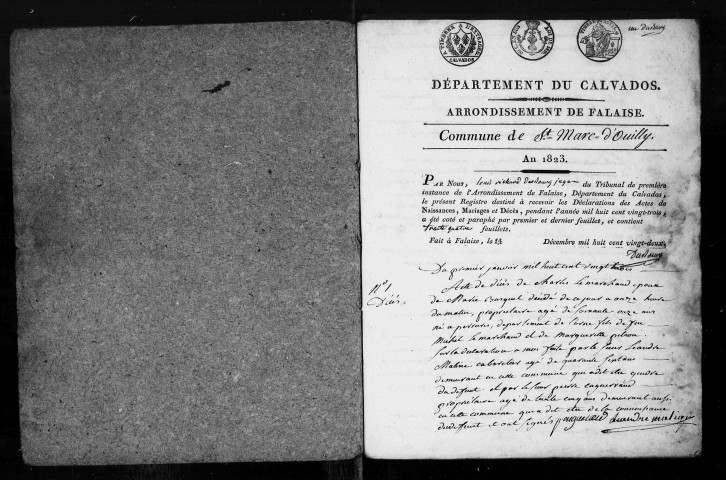 DÉPARTEMENT DU CALVADOS.
ARRONDISSEMENT DE FALAISE.
Commune de St. Marc-d'Ouilly.
An 1823.
PAR NOUS, Louis Richard juge du Tribunal de première
instance de l'Arrondissement de Falaise, Département du Calvados,
le présent Registre destiné à recevoir les Déclarations des Actes de
Naissances, Mariages et Décès, pendant l'année mil huit cent vingt-trois,
a été coté et paraphé par premier et dernier feuillet, et contient
trente quatre feuillets.
Fait à Falaise, le 14 Décembre mil huit cent vingt-deux.
Du premier janvier mil huit cent vingt trois
N° 1
Décès.
Acte de décès de Charles le marchand, époux
de Marie décédé de ce jour a onze heures
du matin, propriétaire agé de soixante onze ans
né a, département de l'orne fils de feu
Michel le marchand et de Marguerite
Sur la déclaration a nous faite par le sieur Leandre
agé de quarante sept ans
demeurant en cette commune qui a dit être gendre
du défunt et par le sieur pierre
propriétaire agé de cinq ans demeurant aussi
en cette commune qui a dit être de la connaissance
du defunt et ont signés